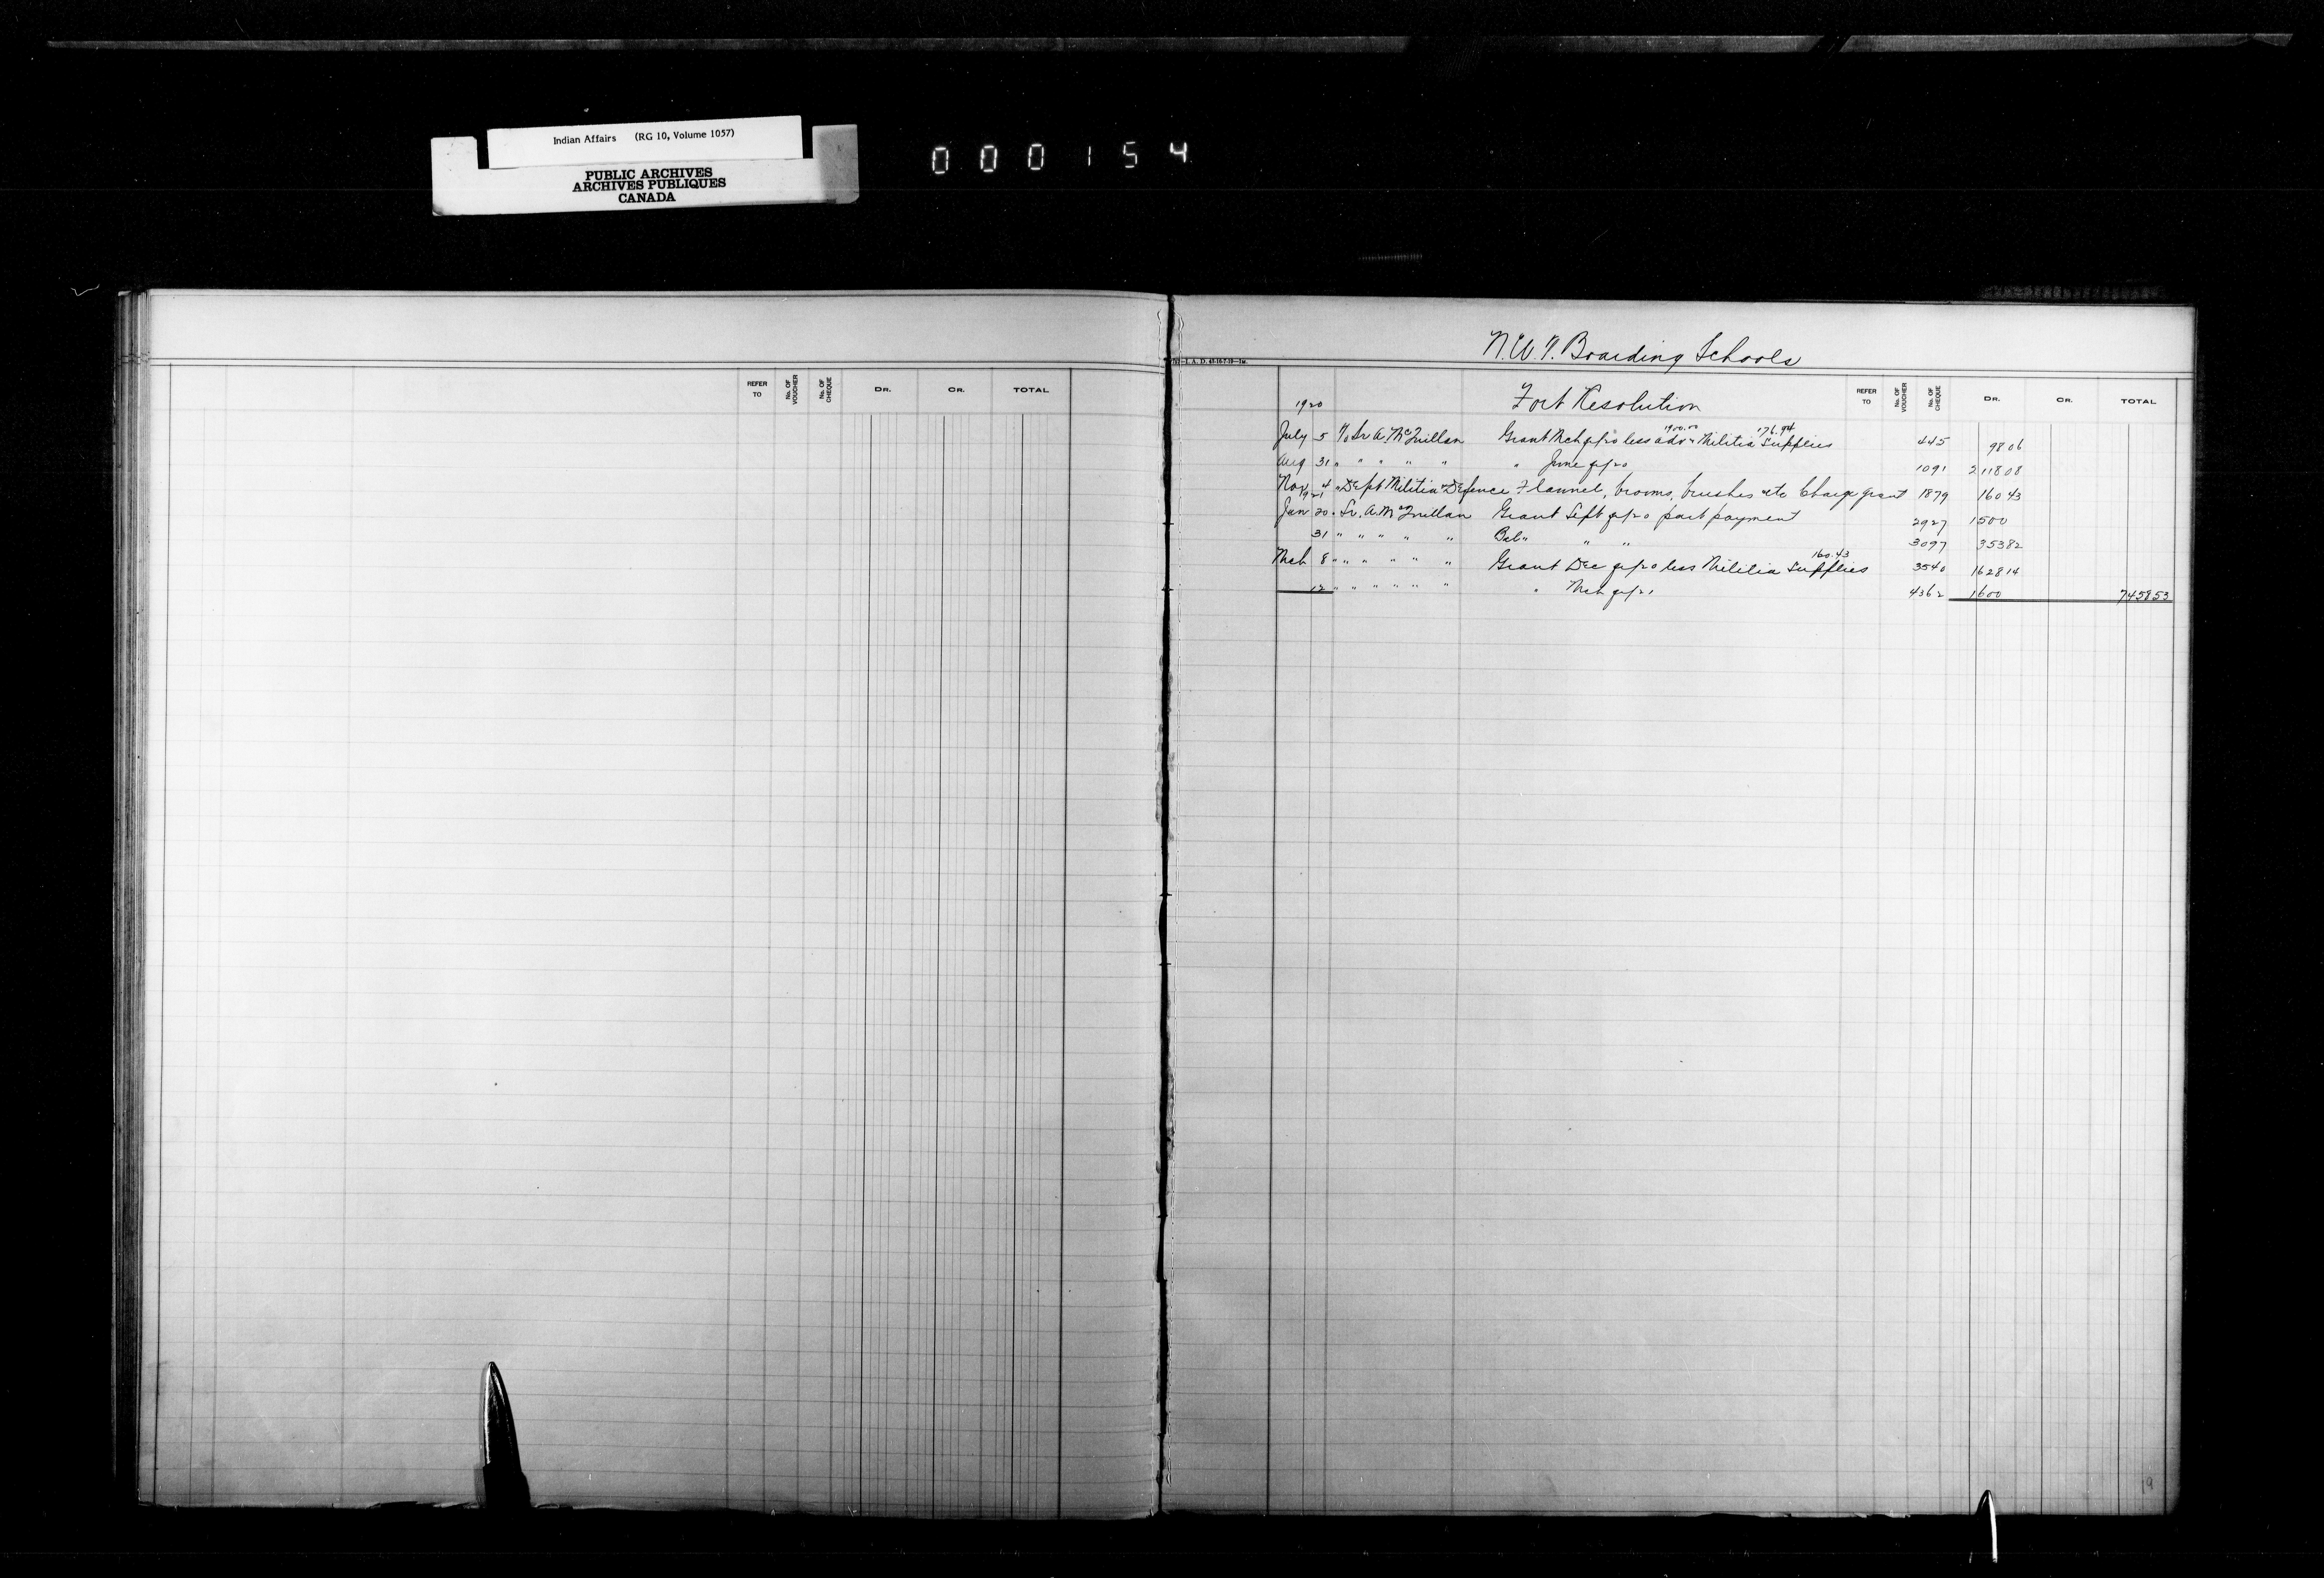 Indian Affairs (RG 10, Volume 1057)
PUBLIC ARCHIVES
ARCHIVES PUBLIQUES
CANADA
000154
REFER TO No. OF VOUCHER No. OF CHEQUE DR. CR. TOTAL
N.W.T. Boarding Schools
1920 Fort Resolution REFER TO No. OF VOUCHER No. OF CHEQUE DR. CR. TOTAL
1900.00 176.94
July 5 To Sr A. McQuillan Grant Mch qr/20 less adv " Militia Supplies 445 98 06
Aug 31 " " " " " " June qr/20 1091 2118 08
Nov 4 " Dept Militia & Defence Flannel, brooms, brushes etc Charge grant 1879 160 43
1921
Jan 20 " Sr. A. McQuillan Grant Sept qr/20 part payment 2927 1500
31 " " " " " Bal " " " 3097 353 82
160.43
Mch 8 " " " " " " Grant Dec qr/20 less Militia Supplies 3540 1628 14
12 " " " " " " " Mch qr/21 4362 1600 7458 53
19